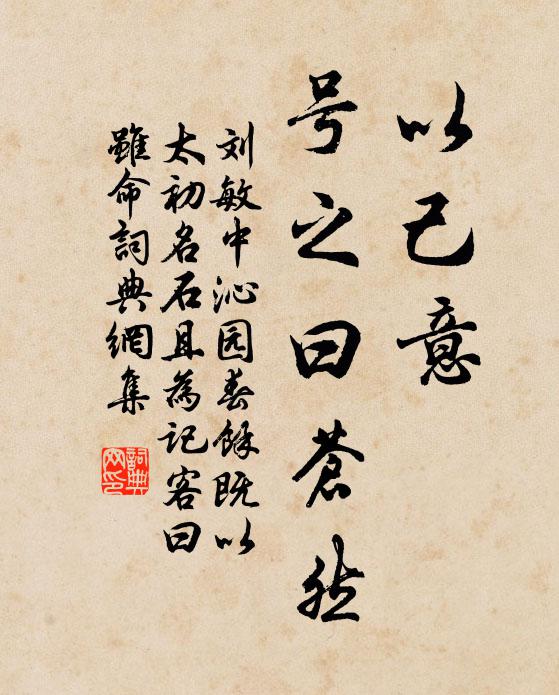 以己意
号之曰蒼然
刘敏中沁园春餘既以
太初名石且為记客曰
雖命詞典網集
詞典
网印